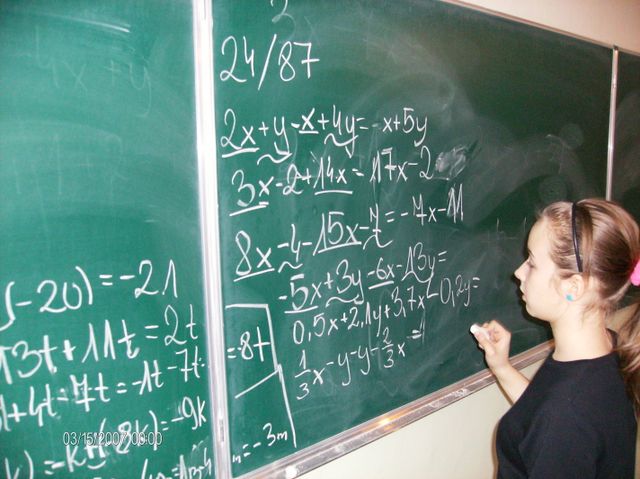 4x + y
(-20) = -21
13t + 11t = 2t
+ 4t - 7t = -1t - 7t = -8t
= -k + (-8k) = -9k
= -3m
24/87
2x + y - x + 4y = x + 5y
3x - 2 + 14x = 17x - 2
8x - 4 - 15x - 7 = -7x - 11
-5x + 3y - 6x - 13y =
0,5x + 2,1y + 3,7x - 0,2y =
1/3x - y - y - 2/3x =
03/15/2007 00:00